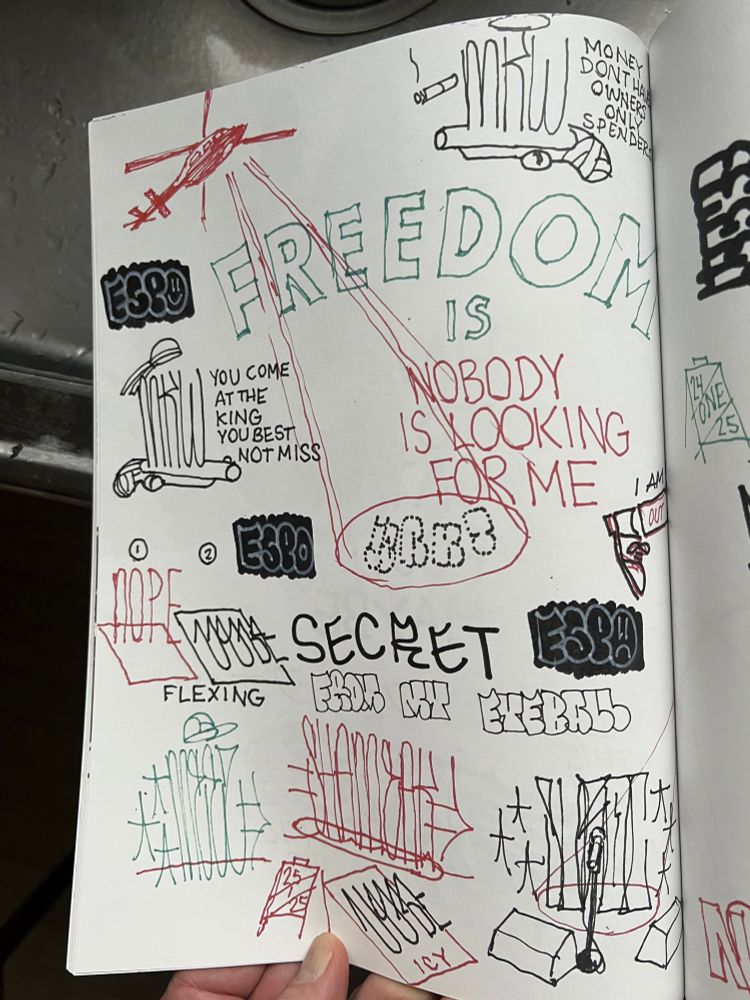 MKW
MONEY
DONT HAVE
OWNERS
ONLY
SPENDERS
FREEDOM
IS
ESPO
MKW
YOU COME
AT THE
KING
YOU BEST
NOT MISS
NOBODY
IS LOOKING
FOR ME
24
ONE
25
I AM
OUT
1
2
ESPO
NOPE
SECRET
ESPO
FLEXING
FROM MY EYEBALL
25
25
ICY